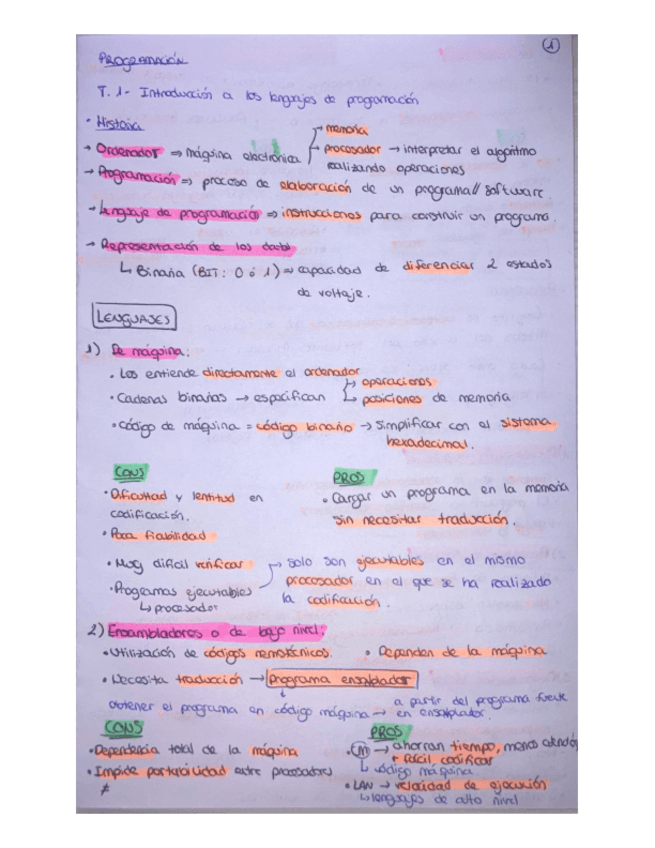 1
PROGRAMACIÓN
T. 1- Introducción a los lenguajes de programación
· Historia
→ Ordenador ⇒ máquina electrónica → memoria
→ procesador → interpretar el algoritmo
realizando operaciones
→ Programación ⇒ proceso de elaboración de un programa // software
→ Lenguaje de programación ⇒ instrucciones para construir un programa.
→ Representación de los datos
↳ Binaria (BIT: 0 ó 1) ⇒ capacidad de diferenciar 2 estados
de voltaje.
LENGUAJES
1) De máquina:
· Los entiende directamente el ordenador
· Cadenas binarias → especifican → operaciones
↳ posiciones de memoria
· Código de máquina = código binario → Simplificar con el sistema
hexadecimal.
CONS
· Dificultad y lentitud en
codificación.
· Poca fiabilidad
· Muy difícil verificar
· Programas ejecutables → solo son ejecutables en el mismo
procesador en el que se ha realizado
la codificación.
↳ procesador
PROS
· Cargar un programa en la memoria
sin necesitar traducción.
2) Ensambladores o de bajo nivel:
· Utilización de códigos nemotécnicos. · Dependen de la máquina
· Necesita traducción → programa ensamblador
obtener el programa en código máquina → a partir del programa fuente
en ensamblador.
CONS
· Dependencia total de la máquina
· Impide portabilidad entre procesadores
≠
PROS
· CM → ahorran tiempo, menos
+ fácil codificar
↳ código máquina
· LAN → velocidad de ejecución
↳ lenguajes de alto nivel